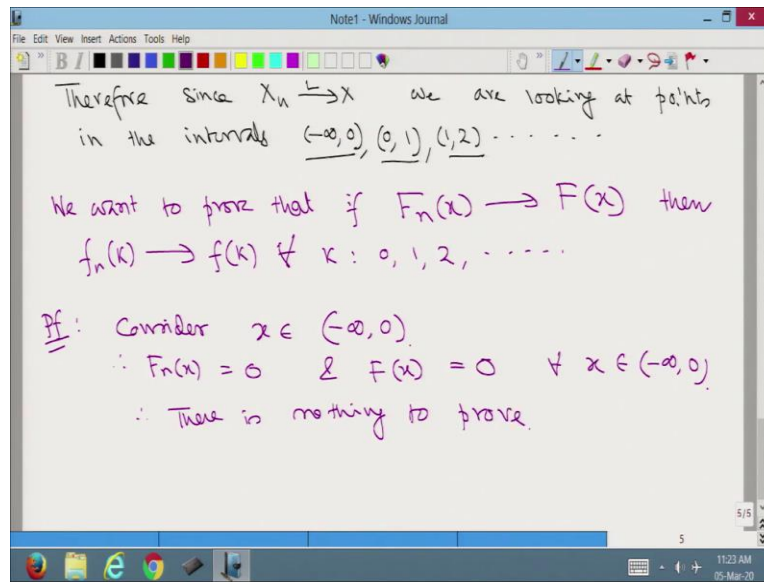 Note1 - Windows Journal
File Edit View Insert Actions Tools Help
B I
Therefore since Xn →L X we are looking at points
in the intervals (-∞, 0), (0, 1), (1, 2) ......
We want to prove that if Fn(x) → F(x) then
fn(K) → f(K) ∀ K : 0, 1, 2, .....
Pf : Consider x ∈ (-∞, 0).
∴ Fn(x) = 0 & F(x) = 0 ∀ x ∈ (-∞, 0)
∴ There is nothing to prove.
5/5
5
11:23 AM
05-Mar-20